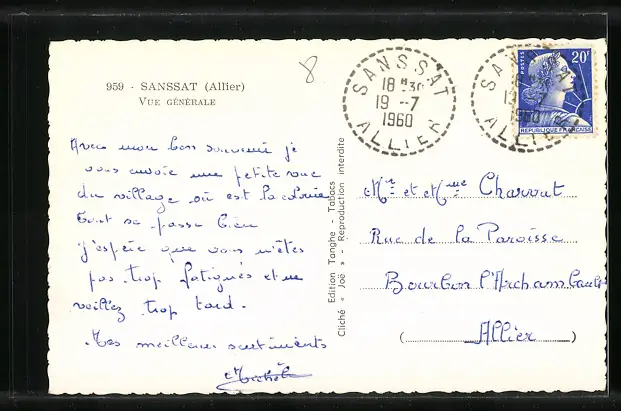 959 - SANSSAT (Allier)
VUE GÉNÉRALE
8
Avec mon bon souvenir je
vous envoie une petite vue
du village où est la colonie
tout se passe bien
j'espère que vous n'êtes
pas trop fatigués et ne
veillez trop tard.
Mes meilleurs sentiments
Michel
Edition Tanghe - Tabacs
Cliché « Joë » - Reproduction interdite
SANSSAT
18 H 30
19 -7
1960
ALLIER
1960
POSTES
20F
REPUBLIQUE FRANÇAISE
Mr et Mme Charvat
Rue de la Paroisse
Bourbon l'Archambault
(Allier)